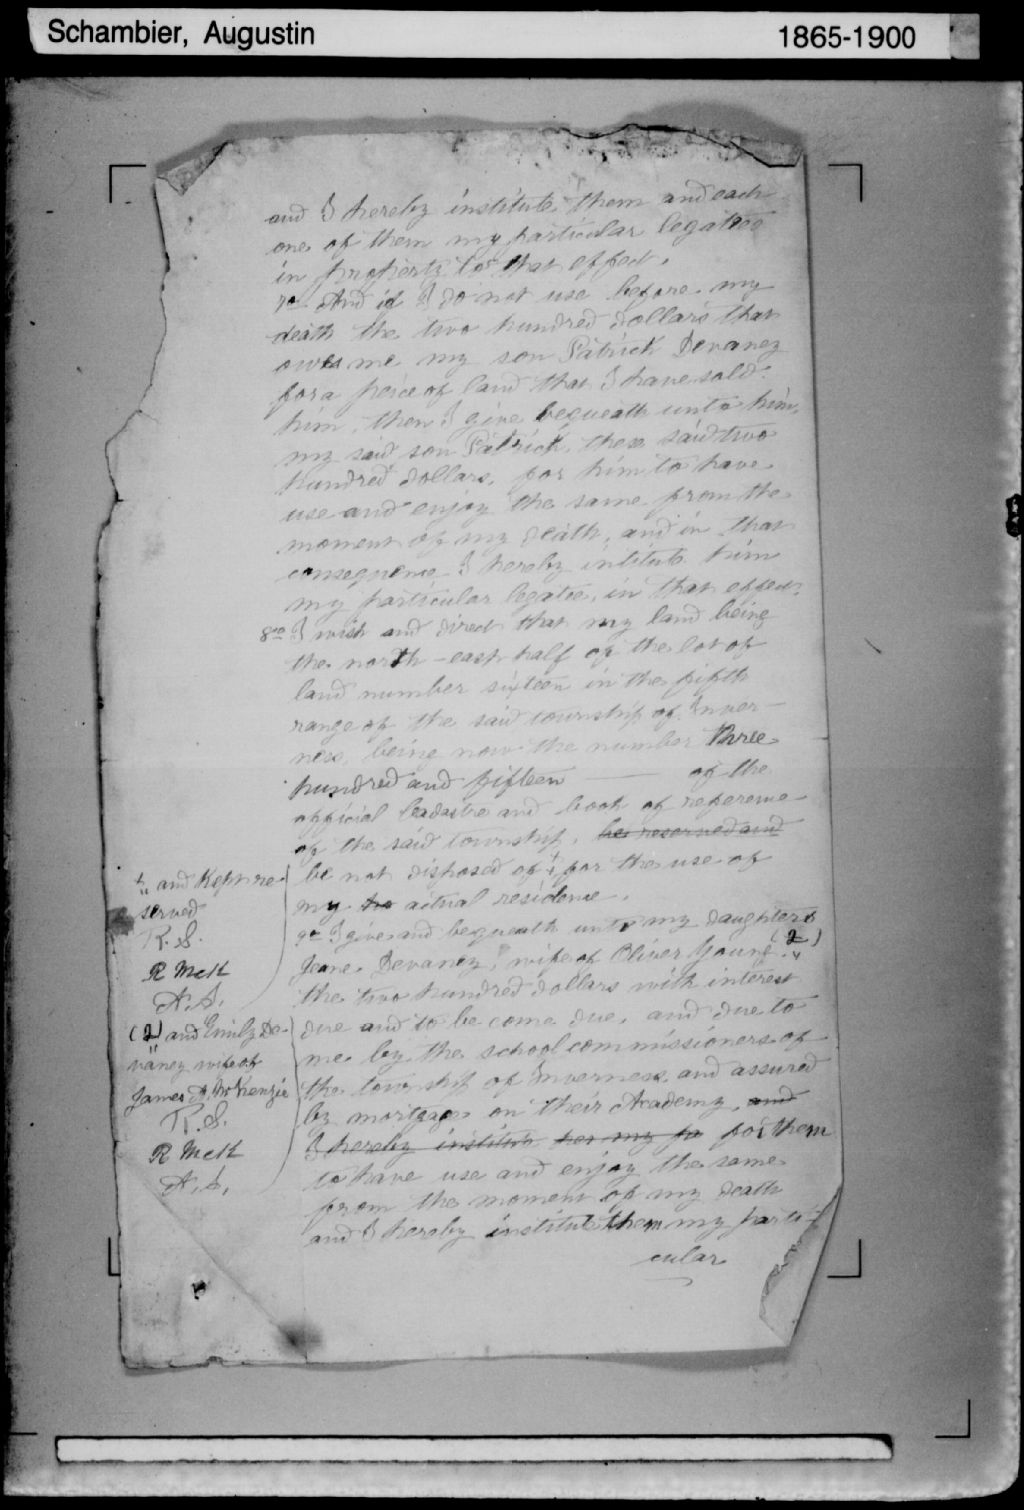 Schambier, Augustin
1865-1900
and I hereby institute them and each
one of them my particular legatee
in property to that effect.
7o And if I do not use before my
death the two hundred dollars that
owes me my son Patrick Devaney
for a peice of land that I have sold
him, then I give bequeath unto him,
my said son Patrick, these said two
hundred dollars, for him to have
use and enjoy the same from the
moment of my death, and in that
consequence I hereby intitute him
my particular legatee, in that effect.
8o I wish and direct that my land being
the north-east half of the lot of
land number sixteen in the fifth
range of the said township of Inver-
ness, being now the number three
hundred and fifteen — of the
official Cadastre and book of reference
of the said township, be reserved and
be not disposed of for the use of
my actual residence.
9o I give and bequeath unto my daughters
Jeane Devaney, wife of Oliver Young (2)
the two hundred dollars with interest
due and to be come due, and due to
me by the school commissioners of
the township of Inverness and assured
by mortgage on their Academy, and
I hereby institute her my pa for them
to have use and enjoy the same
from the moment of my death
and I hereby institute them my parti-
cular
and Kept re
served
R. S.
R McK
A. S.
(2) and Emily De-
vaney wife of
James A. McKenzie
R. S.
R McK
A. S.